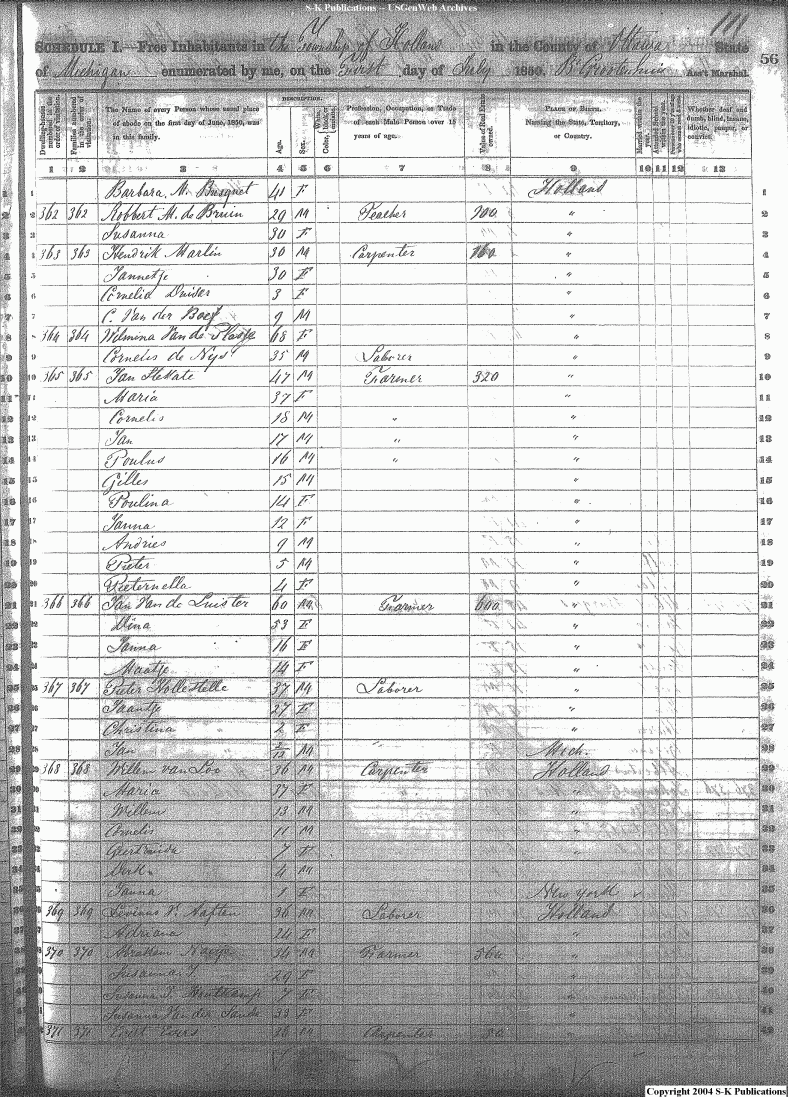 S-K Publications – USGenWeb Archives
111
SCHEDULE I.—Free Inhabitants in the Township of Holland in the County of Ottawa State
of Michigan enumerated by me, on the First day of July 1850. Ass't Marshal.
56
Dwelling-houses numbered in the order of visitation.
Families numbered in the order of visitation.
The Name of every Person whose usual place of abode on the first day of June, 1850, was in this family.
DESCRIPTION.
Age.
Sex.
White, black, or mulatto. Color,
Profession, Occupation, or Trade of each Male Person over 15 years of age.
Value of Real Estate owned.
PLACE OF BIRTH. Naming the State, Territory, or Country.
Married within the year.
Attended School within the year.
Whether deaf and dumb, blind, insane, idiotic, pauper, or convict.
1 2 3 4 5 6 7 8 9 10 11 12 13
1 Barbara M. Busquet 41 F Holland 1
2 362 362 Robbert M. de Bruin 29 M Teacher 900 " 2
3 Susanna 30 F " 3
4 363 363 Hendrik Marlin 30 M Carpenter " 4
5 Jannetje 30 F " 5
6 Cornelia 3 F " 6
7 C. Van der Boef 9 M " 7
8 364 364 Wilmina Van de 68 F " 8
9 Cornelis de Nijs 35 M Laborer " 9
10 365 365 Jan 47 M Farmer 320 " 10
11 Maria 37 F " 11
12 Cornelis 18 M " " 12
13 Jan 17 M " " 13
14 Poulus 16 M " " 14
15 Gilles 15 M " 15
16 Poulina 14 F " 16
17 Janna 12 F " 17
18 Andries 9 M " 18
19 Pieter 5 M " 19
20 Pieternella 4 F " 20
21 366 366 Jan Van de Luister 60 M Farmer 600 " 21
22 Dina 53 F " 22
23 Janna 16 F " 23
24 Maatje 14 F " 24
25 367 367 Pieter Hollestelle 37 M Laborer " 25
26 27 F " 26
27 Christina 2 F " 27
28 Jan M " Mich. 28
29 368 368 Willem van Loo 36 M Carpenter Holland 29
30 Maria 37 F " " 30
31 Willem 13 M " 31
32 Cornelis 11 M " 32
33 7 F " 33
34 Dirk 4 M " 34
35 Janna 1 F New York 35
36 369 369 Levinus V. Aaften 36 M Laborer Holland 36
37 Adriana 24 F " 37
38 370 370 Abraham 34 M Farmer 560 " 38
39 Susanna 29 F " 39
40 Susanna 7 F " 40
41 Susanna Van der Sande 38 F " 41
371 371 Evers M Carpenter " 42
Copyright 2004 S-K Publications